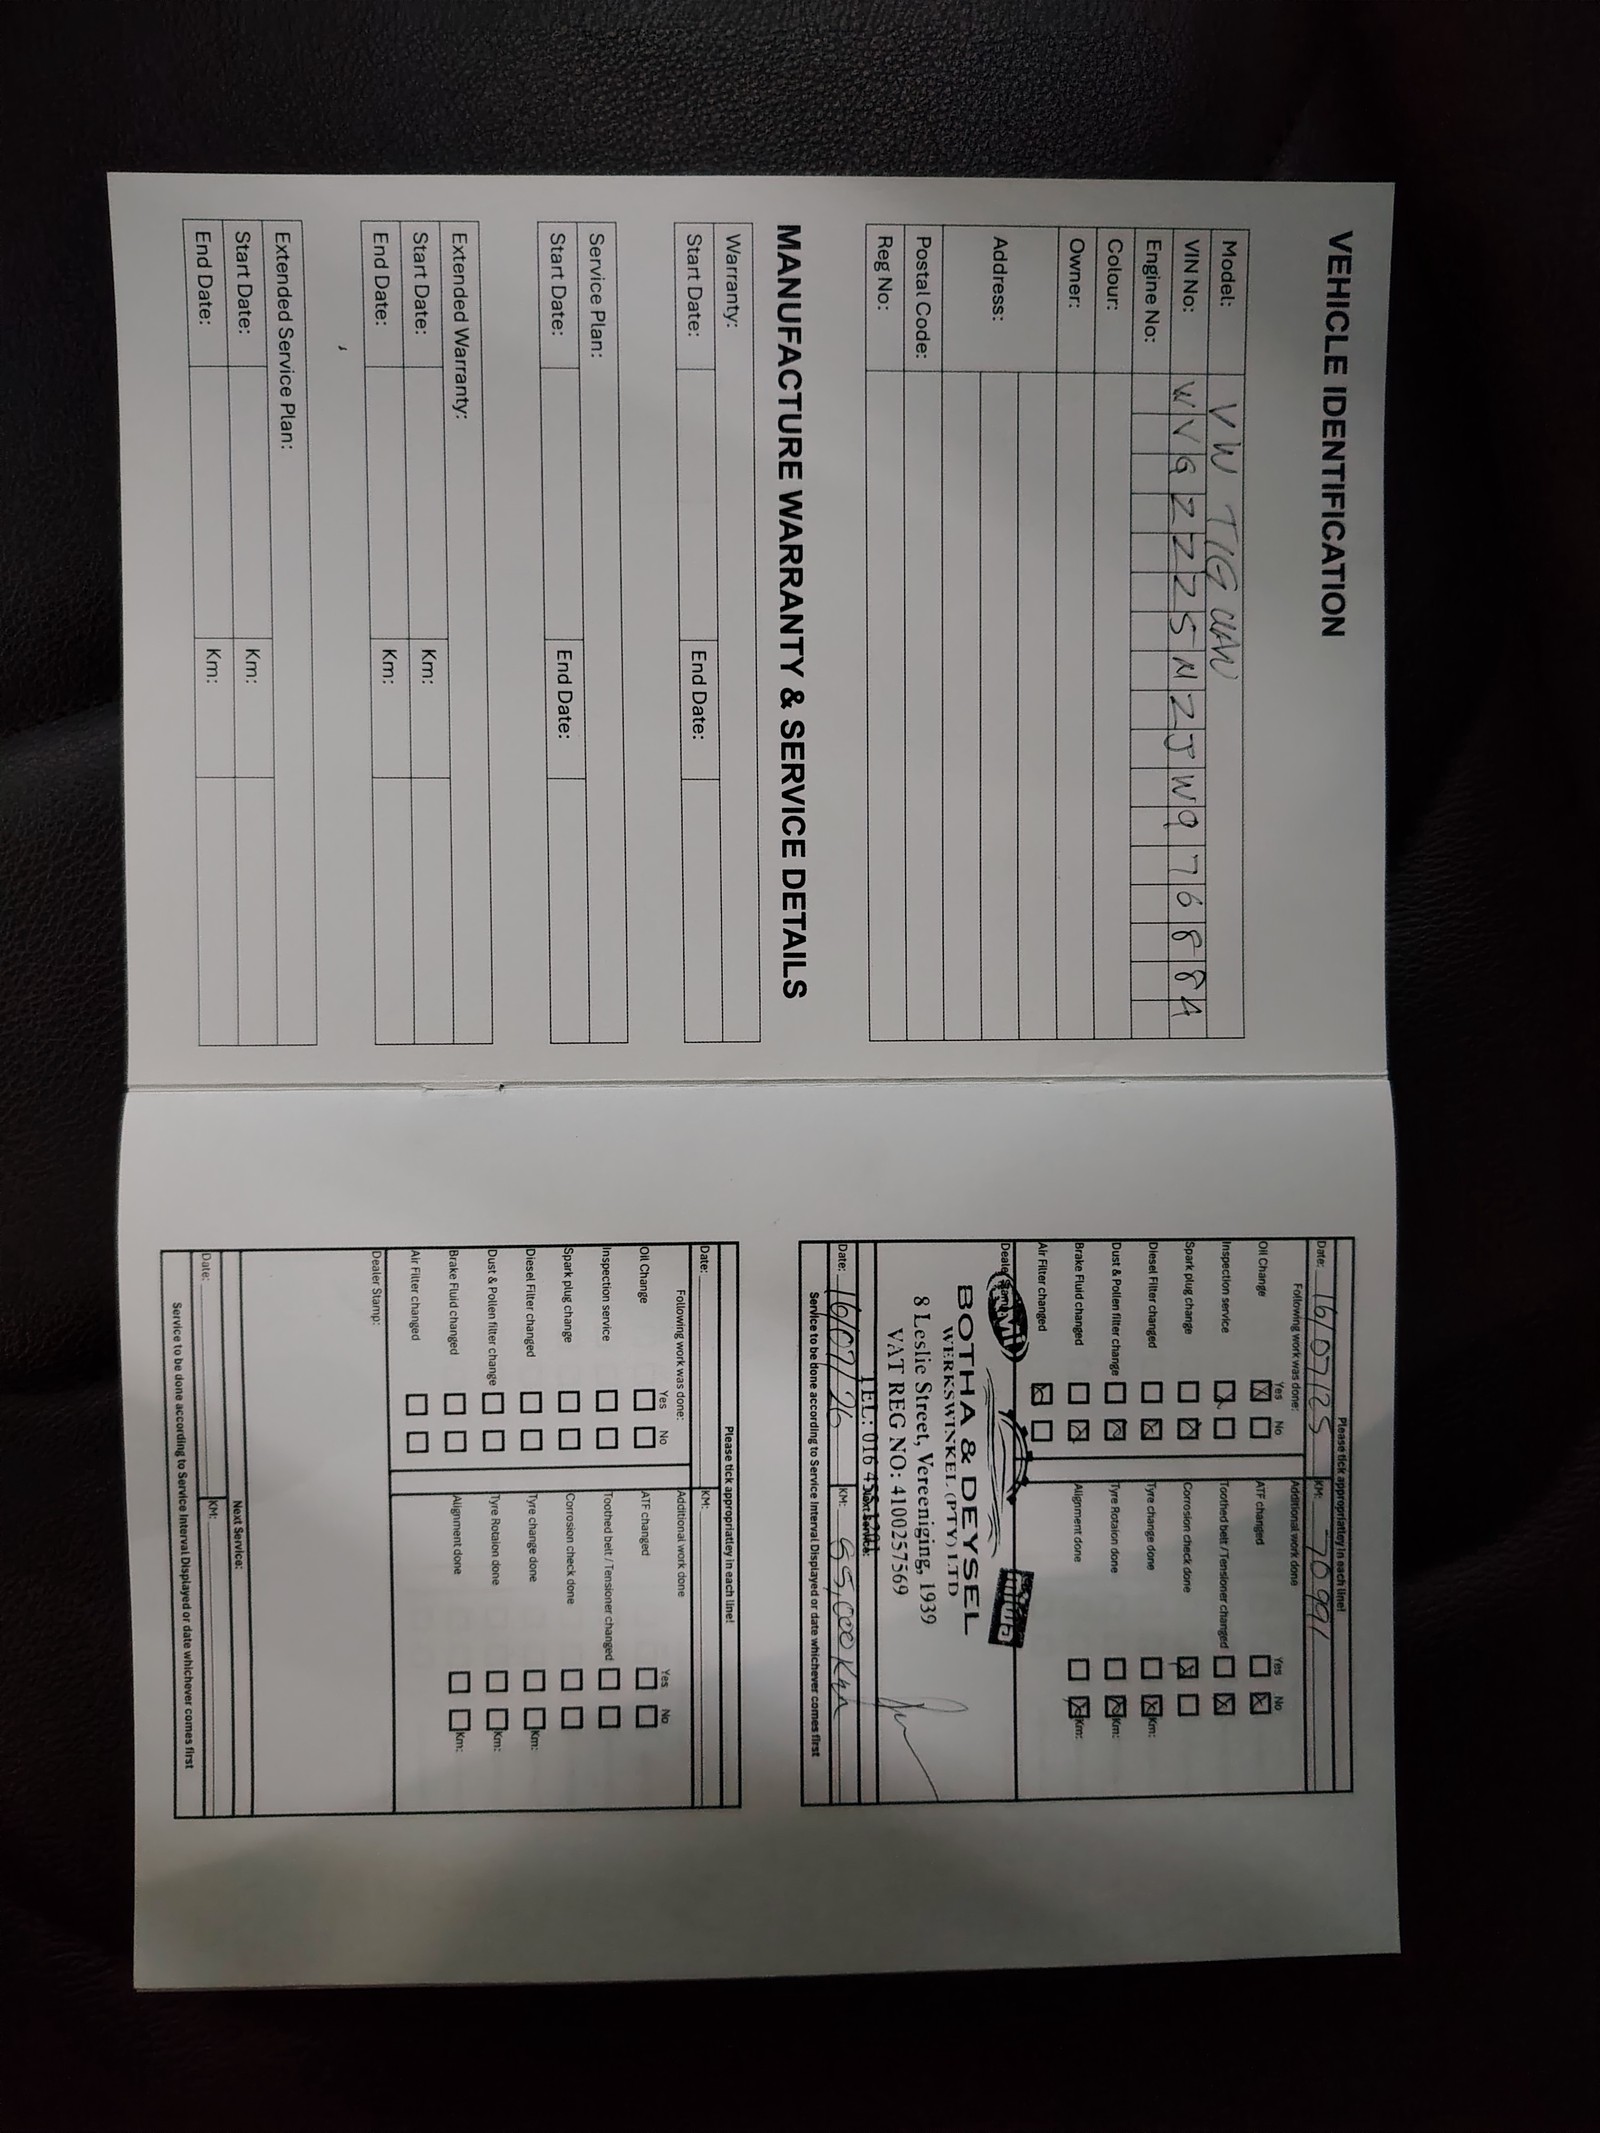 VEHICLE IDENTIFICATION
Model: VW TIGUAN
VIN No: WVGZZZ5NZJW976884
Engine No:
Colour:
Owner:
Address:
Postal Code:
Reg No:
MANUFACTURE WARRANTY & SERVICE DETAILS
Warranty:
Start Date: End Date:
Service Plan:
Start Date: End Date:
Extended Warranty:
Start Date: Km:
End Date: Km:
Extended Service Plan:
Start Date: Km:
End Date: Km:
Please tick appropriatley in each line!
Date: 16/07/25 KM: 70991
Following work was done: Yes No Additional work done Yes No
Oil Change ATF changed
Inspection service Toothed belt / Tensioner changed
Spark plug change Corrosion check done
Diesel Filter changed Tyre change done Km:
Dust & Pollen filter change Tyre Rotaion done Km:
Brake Fluid changed Alignment done Km:
Air Filter changed
Dealer Stamp:
BOTHA & DEYSEL
WERKSWINKEL (PTY) LTD
8 Leslie Street, Vereeniging, 1939
VAT REG NO: 4100257569
TEL: 016
Next Service:
Date: 16/07/26 KM: 85,000 Km
Service to be done according to Service Interval Displayed or date whichever comes first
Please tick appropriatley in each line!
Date: KM:
Following work was done: Yes No Additional work done Yes No
Oil Change ATF changed
Inspection service Toothed belt / Tensioner changed
Spark plug change Corrosion check done
Diesel Filter changed Tyre change done Km:
Dust & Pollen filter change Tyre Rotaion done Km:
Brake Fluid changed Alignment done Km:
Air Filter changed
Dealer Stamp:
Next Service:
Date: KM:
Service to be done according to Service Interval Displayed or date whichever comes first